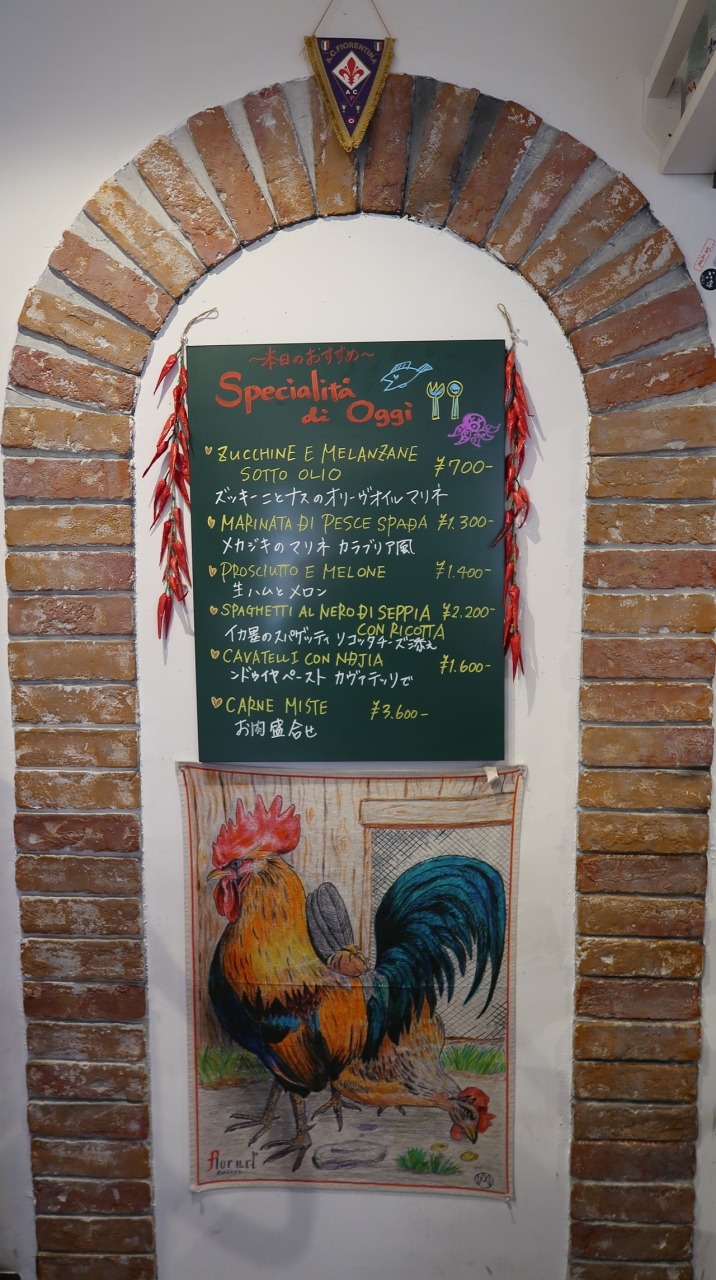 A.C. FIORENTINA
A C
F
~本日のおすすめ~
Specialitá
di Oggi
ZUCCHINE E MELANZANE
SOTTO OLIO ¥700-
ズッキーニとナスのオリーヴオイルマリネ
MARINATA DI PESCE SPADA ¥1.300-
メカジキのマリネ カラブリア風
PROSCIUTTO E MELONE ¥1.400-
生ハムとメロン
SPAGHETTI AL NERO DI SEPPIA ¥2.200-
CON RICOTTA
イカ墨のスパゲッティ リコッタチーズ添え
CAVATELLI CON NDJIA ¥1.600-
ンドゥイヤペースト カヴァテッリで
CARNE MISTE ¥3.600-
お肉盛合せ